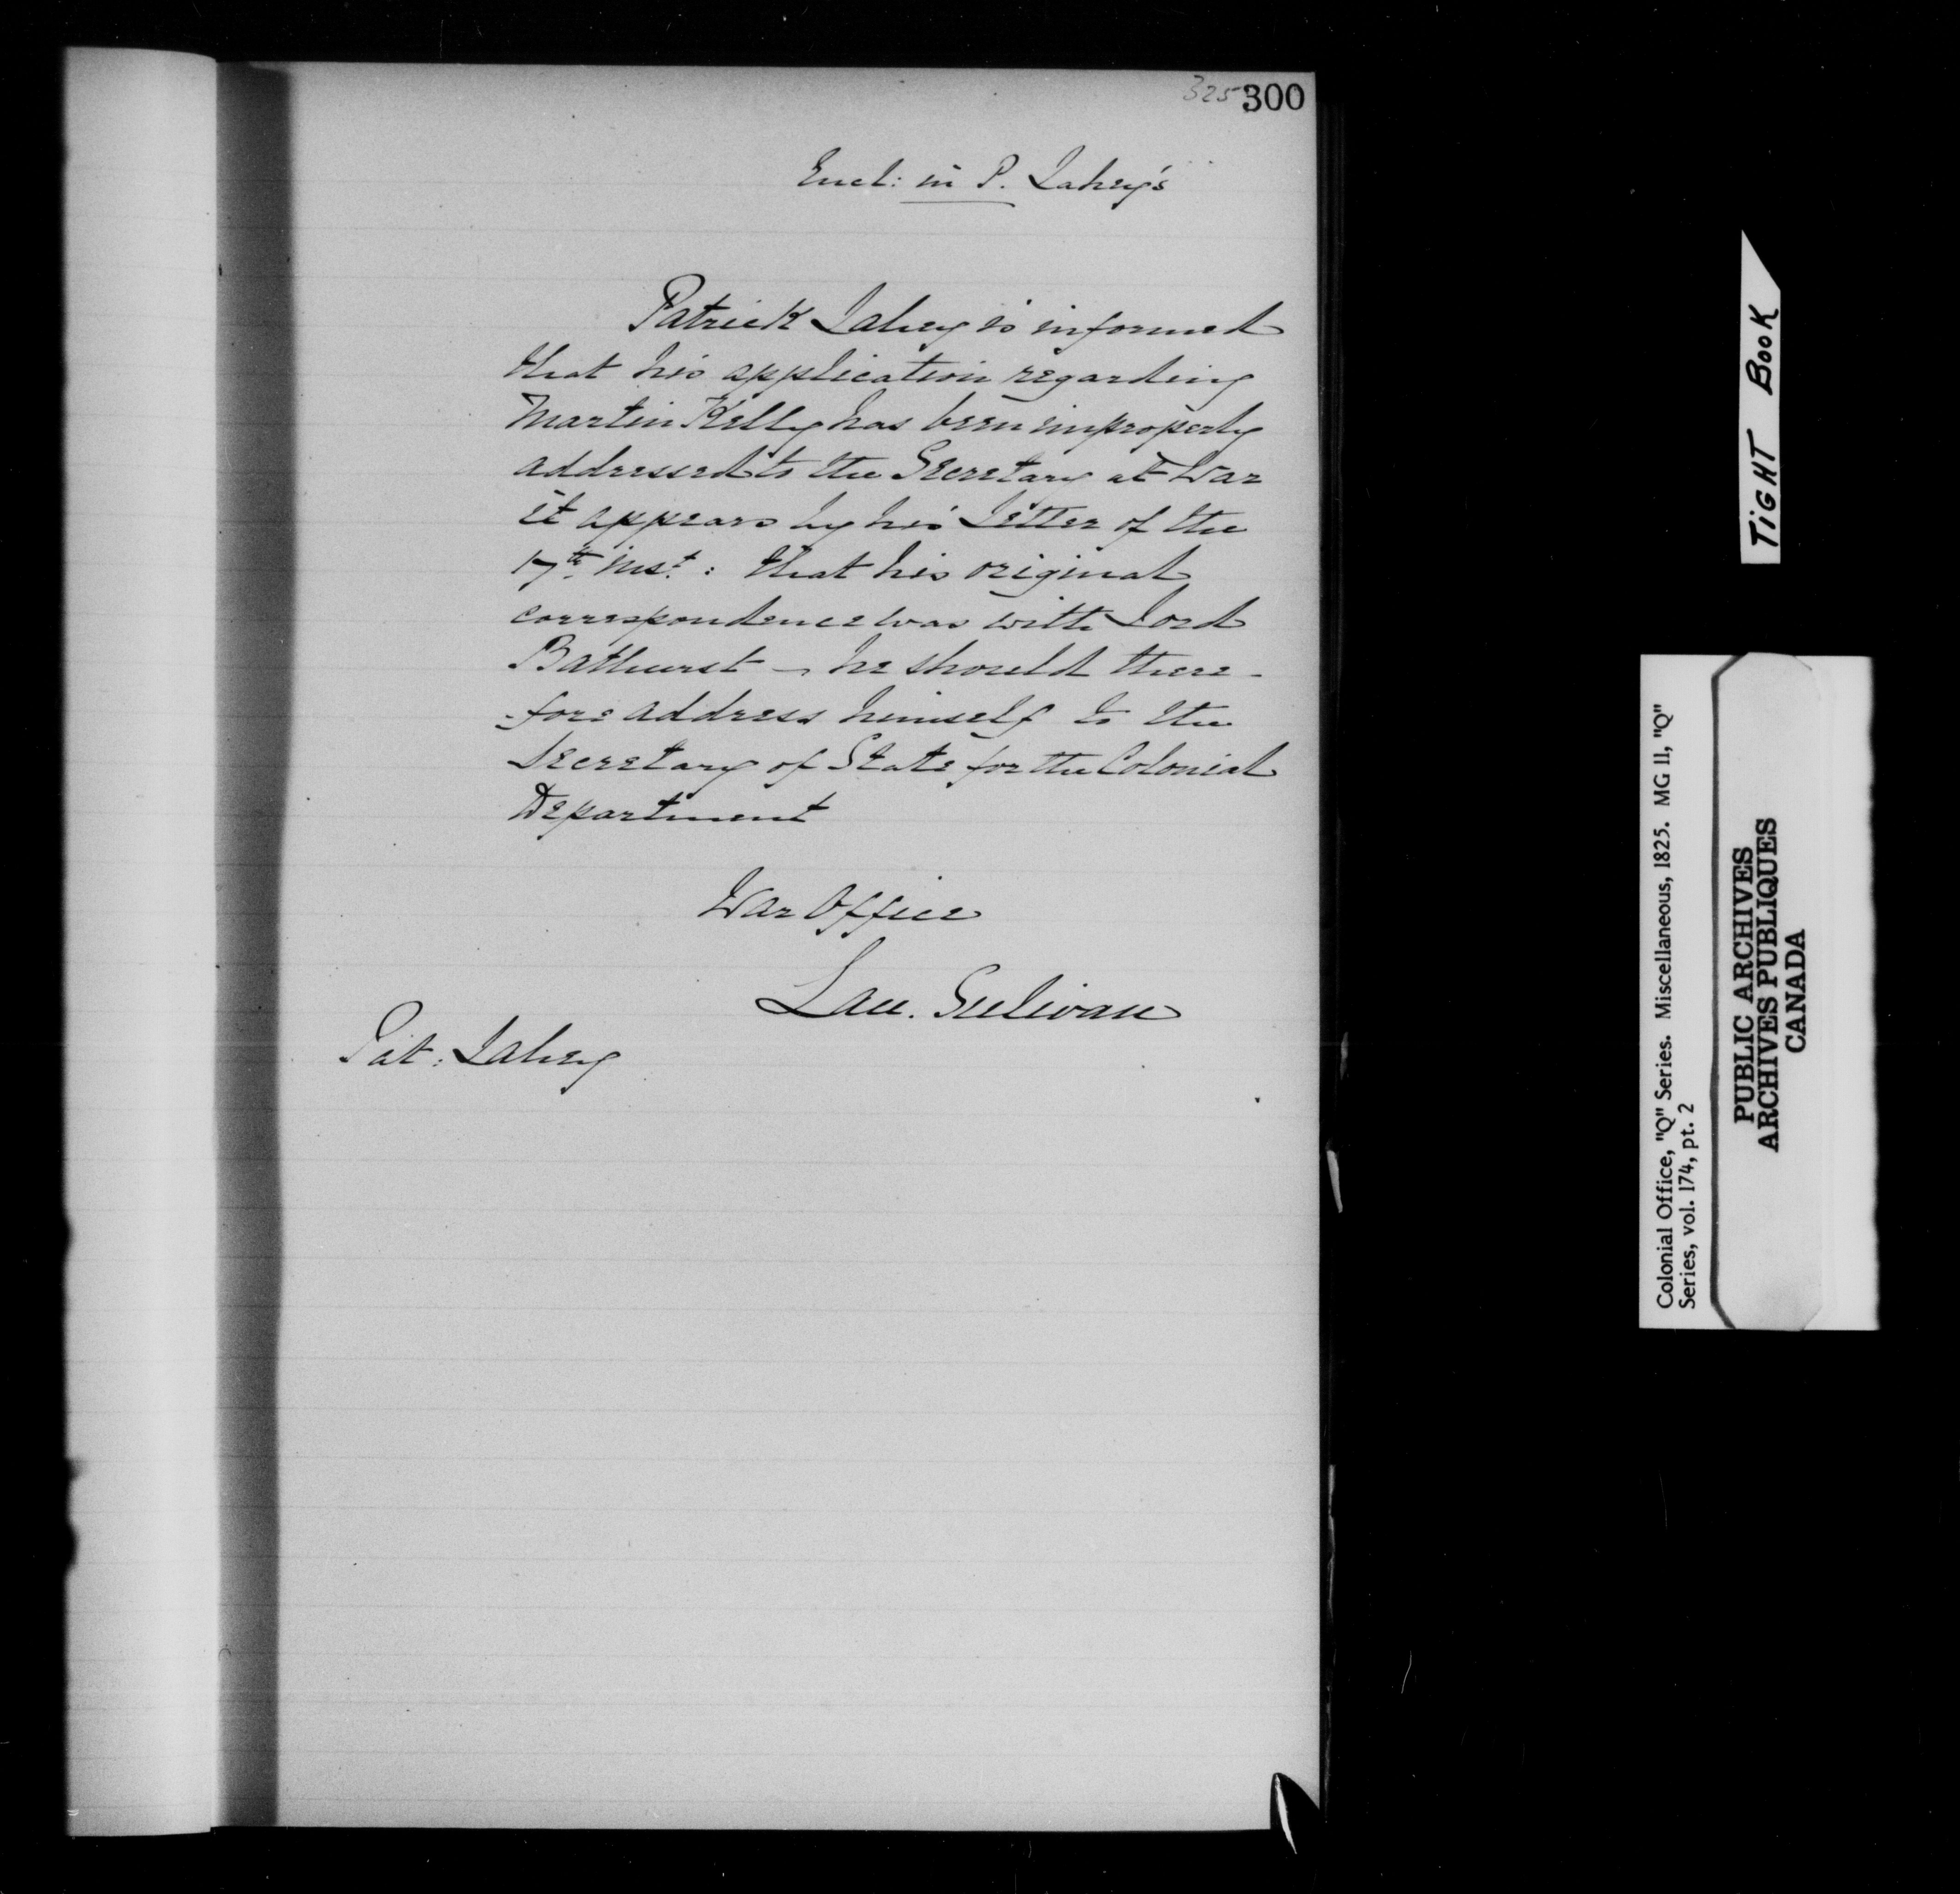 325 300
Encl: in P. Lahey's
Patrick Lahey is informed
that his application regarding
Martin Kelly has been improperly
addressed to the Secretary at War
it appears by his Letter of the
17th. Inst.: that his original
correspondence was with Lord
Bathurst – he should there-
-fore address himself to the
Secretary of State for the Colonial
Department
War Office
Lau. Sulivan
Pat: Lahey
TIGHT BOOK
Colonial Office, "Q" Series. Miscellaneous, 1825. MG 11, "Q"
Series, vol. 174, pt. 2
PUBLIC ARCHIVES
ARCHIVES PUBLIQUES
CANADA